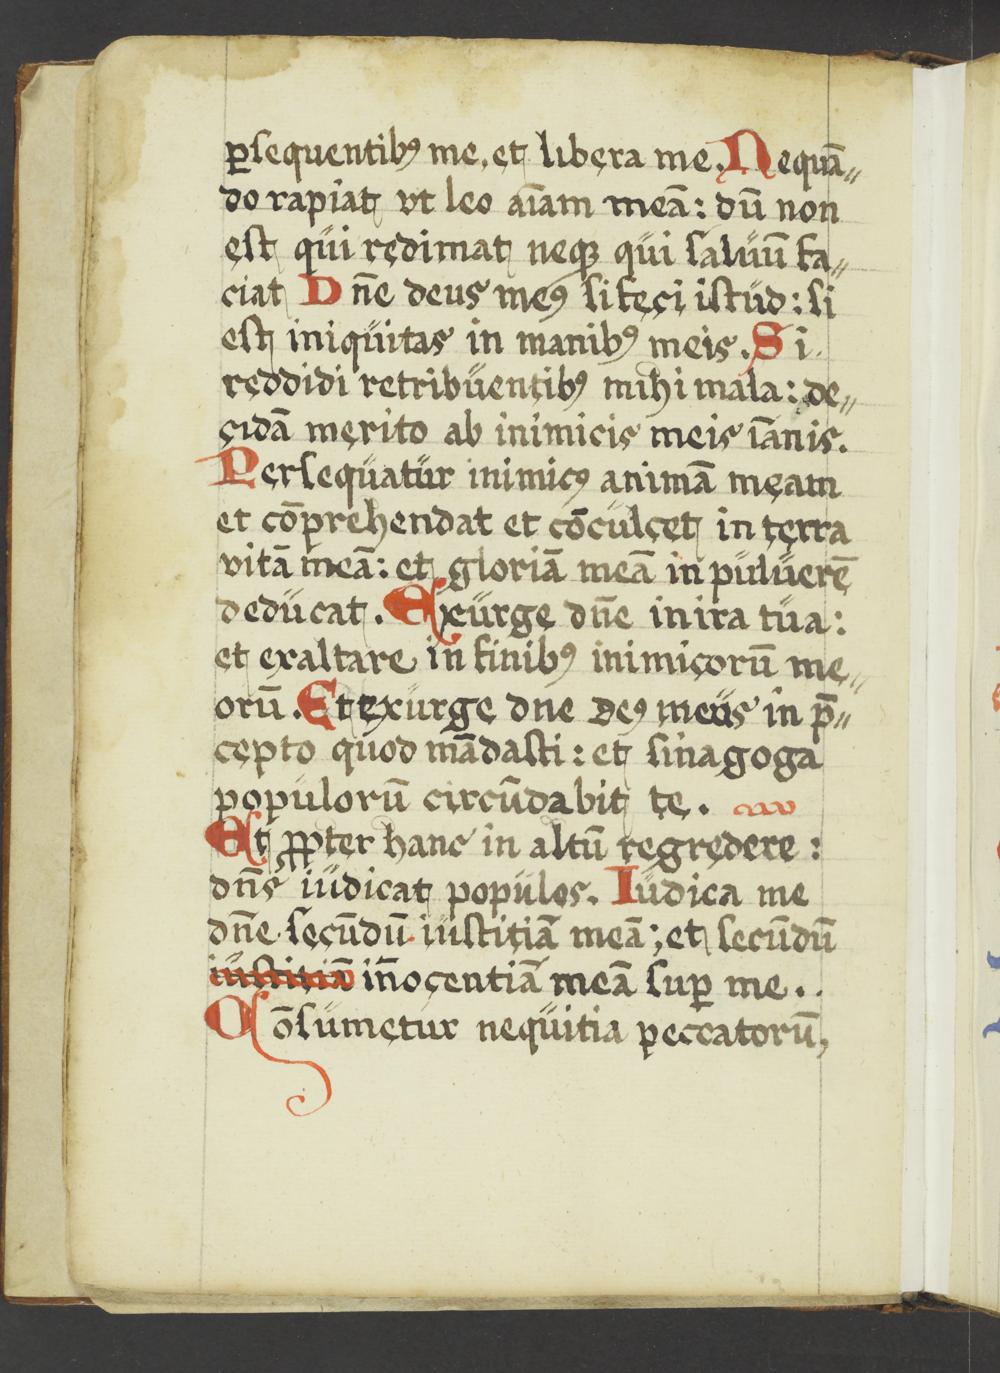 ꝑsequentibꝯ me, et libera me. Nequā„
do rapiat vt leo aīam meā: dū non
est qui redimat neqꝫ qui saluū fa„
ciat Dn̄e deus meꝯ si feci istud: si
est iniquitas in manibꝯ meis. Si
reddidi retribuentibꝯ mihi mala: de„
cidā merito ab inimicis meis īanis.
Persequatur inimicꝯ animā meam
et cōprehendat et cōculcet in terra
vitā meā: et gloriā meā in puluerē
deducat. Exurge dn̄e in ira tua:
et exaltare in finibꝯ inimicorū me„
orū. Et exurge dne deꝯ meus in p̄„
cepto quod mādasti: et sinagoga
populorū circūdabit te.
Et ꝓpter hanc in altū regredere:
dn̄s iudicat populos. Iudica me
dn̄e secūdū iustitiā meā; et secūdū
iustitiā in̄ocentiā meā suꝑ me..
Cōsumetur nequitia peccatorū,